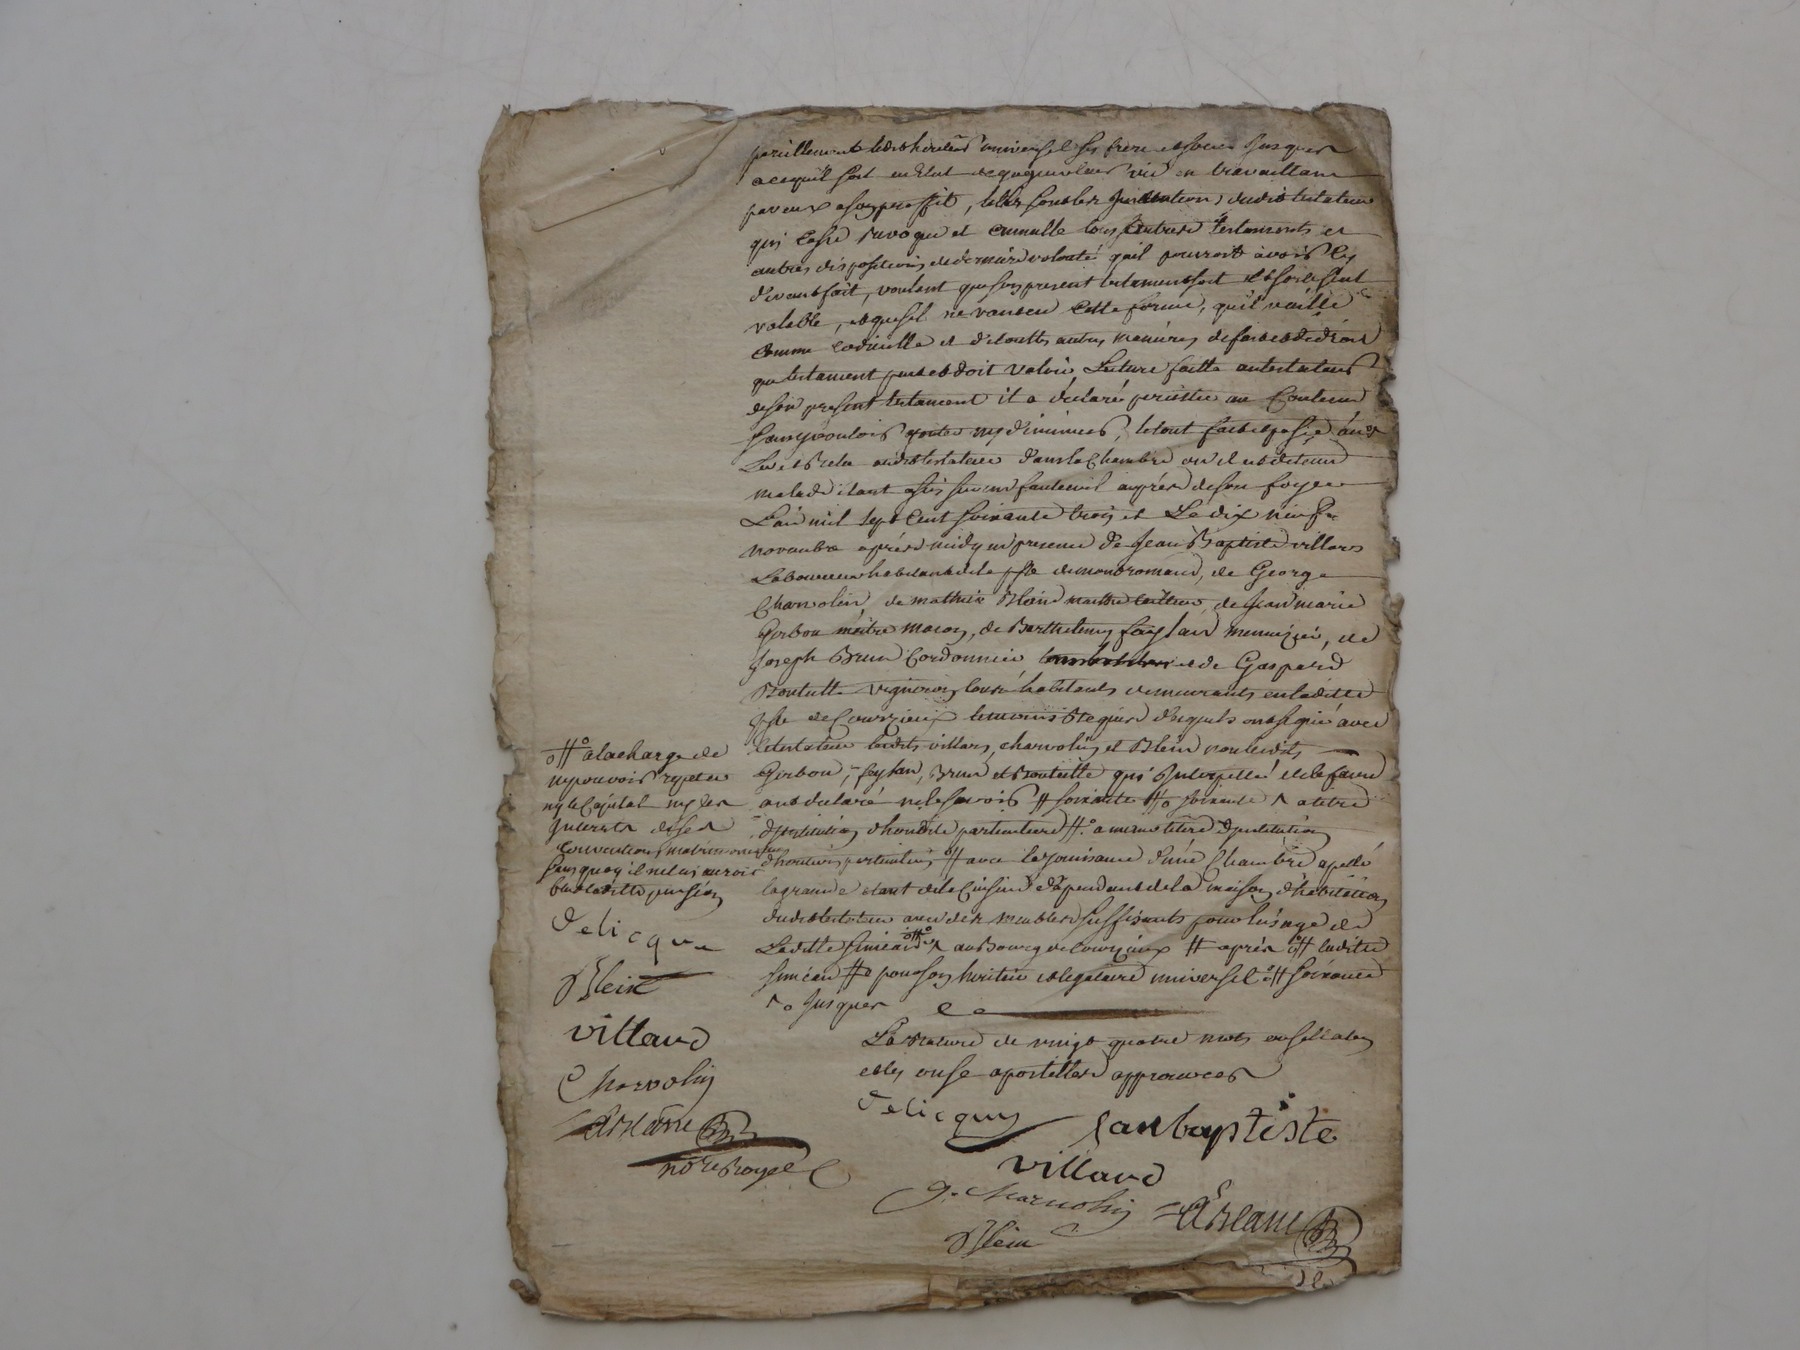 pareillement universel ses frere et soeur jusques
a ce qu'il soit en Etat de gagner leur vie en travaillant
par eux a son proffit, telles sont les Intentions dudit testateur
qui Casse revoque et annulle tous autres testaments et
autres dispositions de derniere volonté qu'il pourroit avoir cy
devant fait, voulant que son present testament soit et soit le seul
valable, et que s'il ne vaut en cette forme, qu'il vaille
comme Codicille et de touttes autres manieres de fait et de droit
que testament peut et doit valoir, Lecture faitte au testateur
de son present testament il a declaré persister au Contenu
sans y vouloir ny diminuer, le tout fait et passé
Lu et Relu audit testateur dans la Chambre ou il est detenu
malade etant assis sur un fauteuil auprès de son foyer
L'an mil sept Cent soixante trois et Le dix neuf
novembre après midy en presence de Jean Baptiste villard
Laboureur habitant de la psse de montromand, de George
Charvolin, de mathieu Blein maitre tailleur, de Jean marie
Gorbon maitre macon, de Barthelemy Faylan menuizier, de
Joseph Brun Cordonnier et de Gaspard
Bouteille vigneron tous habitants demeurants en laditte
psse de Courzieu temoins Requis desquels ont signé avec
le testateur lesdits villard, charvolin et Blein non lesdits
Gorbon, Faylan, Brun et Bouteille qui Interpellé de le faire
ont declaré ne le savoir # soixante #o soixante a titre
d'Institution d'hoirie particuliere #o a meme titre d'Institution
d'hoirie particuliere o# avec la jouissance d'une Chambre apellé
la grande etant de la Cuisine dependant de la maison d'habitation
dudit testateur avec des meubles suffisants pour l'usage de
Laditte Siméan o#o au Bourg de Courzieux # après o# laditte
siméan #o pour son heritier et legataire universel o# soixante
o Jusques
#o a la charge de
ny pouvoir repeter
ny le Capital ny les
Interests de ses
Conventions matrimoniales
sans quoy il ne lui auroit
laditte pension
Delicque
Blein
villard
Charvolin
nore Royal
La Rature de vingt quatre mots
et les onse apostilles approuvees
Delicque
Jan baptiste
villard
g. charvolin
Blein